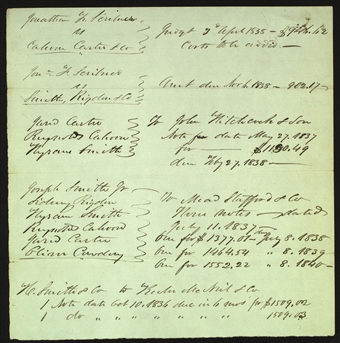 Jonathan F Scribner
vs
Cahoon Carter & Co
Judgt 3d April 1838 - 
Costs to be added -
Jon. F Scribner
vs
Smith, Rigdon & Co
Amt due Nov 6 1838 - 902.17
Jared Carter
Reynolds Cahoon
Hyrum Smith
To John Hitchcock & Son
Note for date May 27. 1837
for $1190.49
due Feby 27. 1838 -
Joseph Smith Jr
Sidney Rigdon
Hyrum Smith
Reynolds Cahoon
Jared Carter
Oliver Cowdery
To Mead Stafford & Co
Three Notes - dated
July 11. 1837 -
One for $1377.01 due July 8. 1838
One for 1464.54 " 8. 1839
One for 1552.22 " 8. 1840 -
H. Smith & Co to Keeler McNeil & Co
1 Note date Oct 10. 1836 due in 6 mos for $1509.02
1 do " " " " " 1509.03